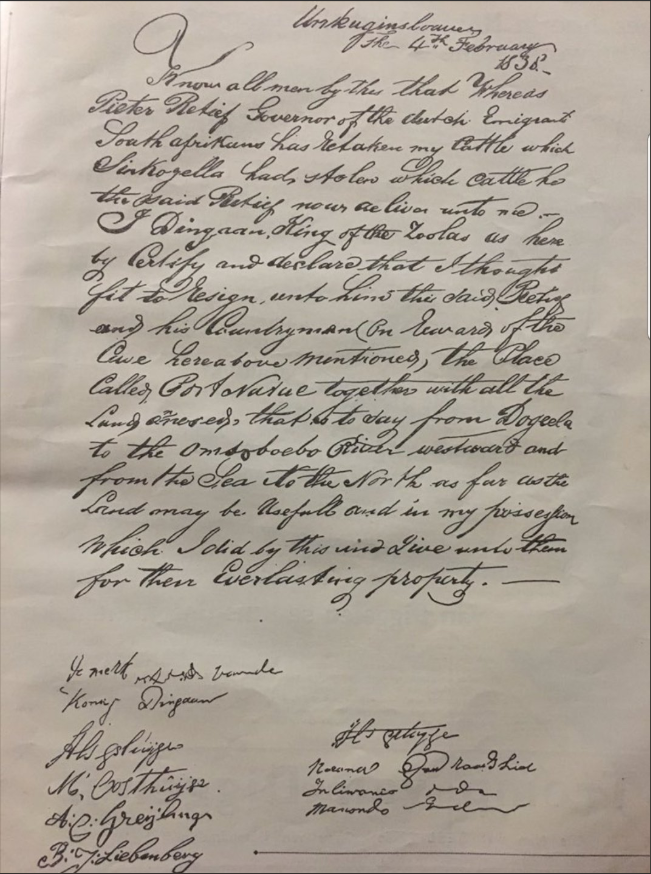 Unkuginsloave
the 4th February
1838-
Know all men by this that Whereas
Pieter Retief Governor of the dutch Emigrant
South afrikans has Retaken my Cattle which
Sinkoyella had, stolen which cattle he
the said Retief now deliver unto me.-
I Dingaan, King of the Zoolas as here
by Certify and declare that I thought
fit to Resign, unto him the said, Retief
and his Countryman (on Reward, of the
Case hereabove mentioned, the Place
Called, Port Natue together with all the
Land anexed, that is to day from Dogeela
to the Omsoboebo River westward and
from the Sea to the North as far as the
Land may be Usefull and in my possession
Which I did by this and Give unto them
for their Everlasting property. —
De merk van de
Konig Dingaan
Als getuijge
M; Oosthuijze.
A:C: Greijling
B: J: Liebenberg
Als getuyge
Nwana Groot Raadslid
Juliwanco do
Manondo